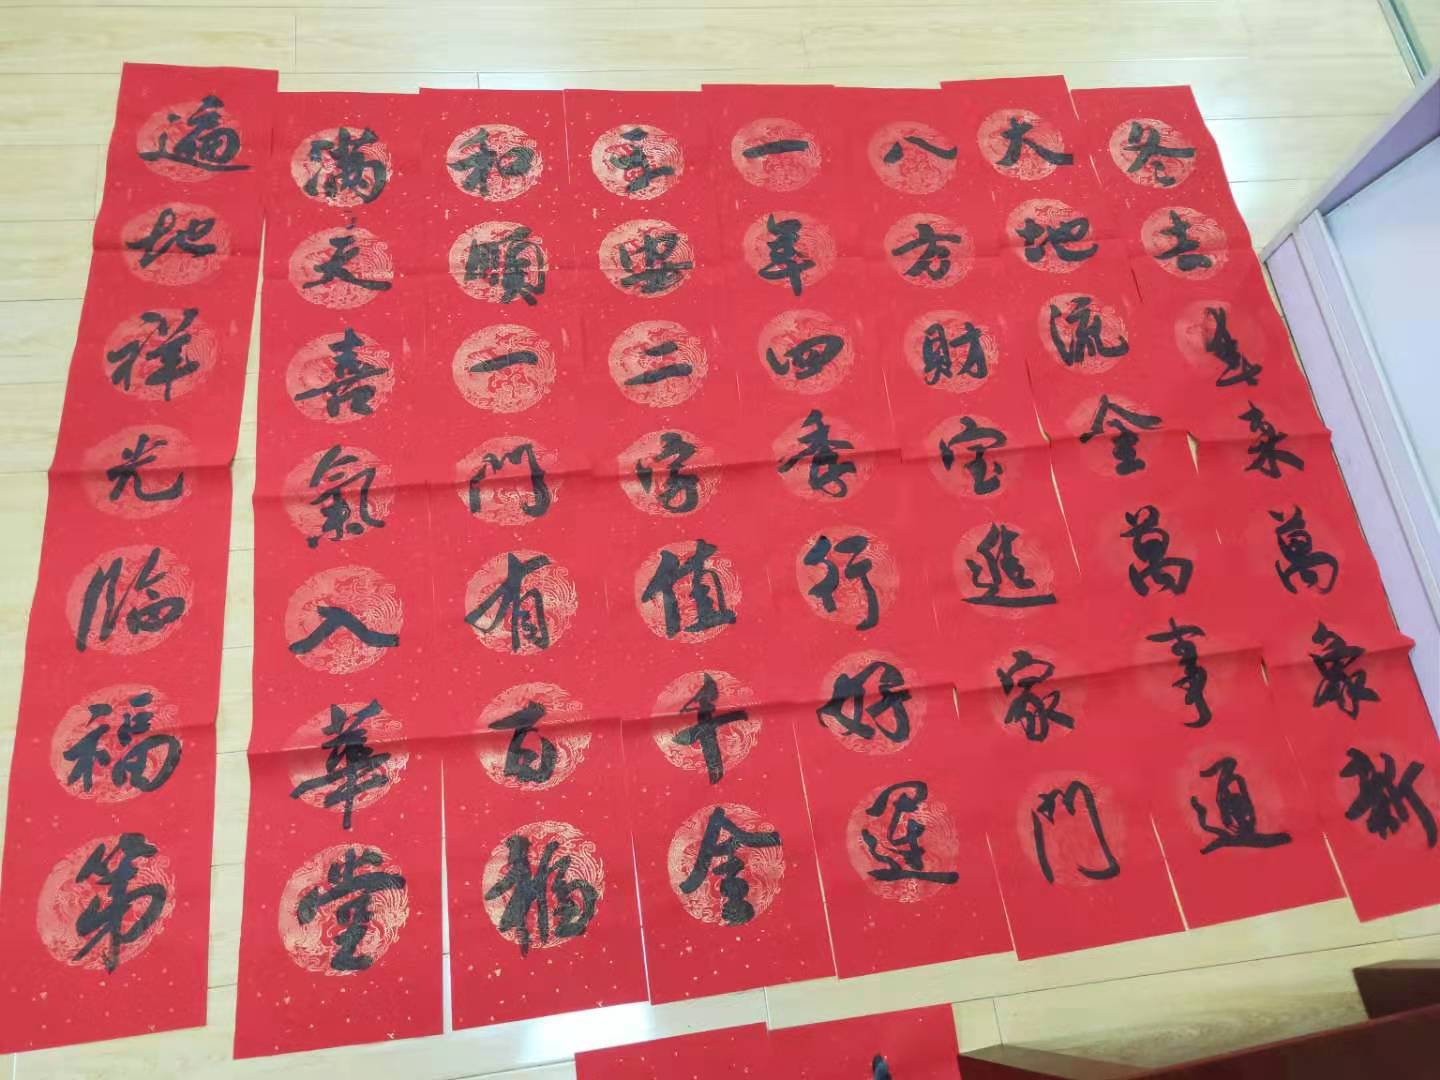 冬去春来萬象新
大地流金萬事通
八方財宝進家門
一年四季行好運
平安二字值千金
和順一門有百福
满天喜氣入華堂
遍地祥光临福第